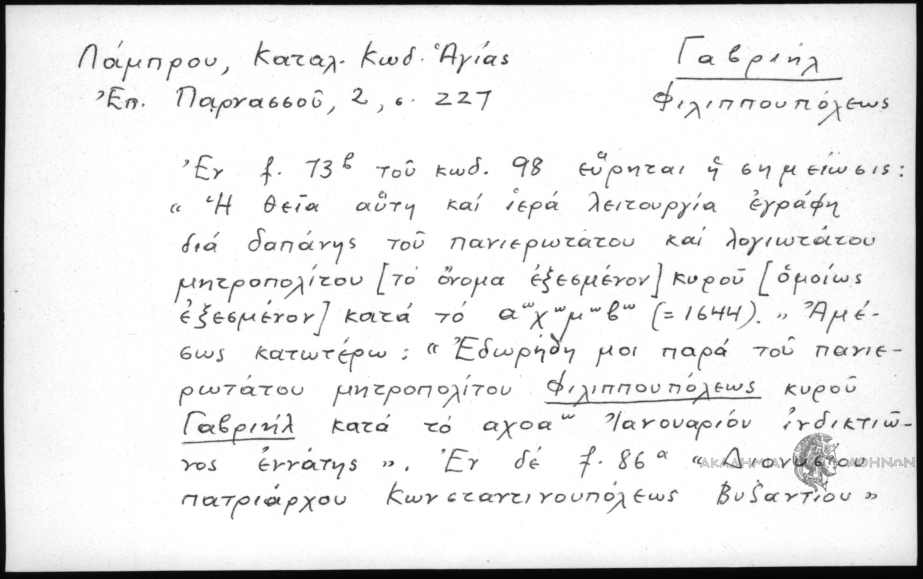 Λάμπρου, Καταλ. Κωδ. Ἁγίας
Γαβριήλ
Ἐπ. Παρνασσοῦ, 2, σ. 227
Φιλιππουπόλεως
Ἐν f. 73β τοῦ κωδ. 98 εὕρηται ἡ σημείωσις:
« Ἡ θεῖα αὕτη καί ἱερά λειτουργία ἐγράφη
διά δαπάνης τοῦ πανιερωτάτου καί λογιωτάτου
μητροπολίτου [τό ὄνομα ἐξεσμένον] κυροῦ [ὁμοίως
ἐξεσμένον] κατά τό αωχωμωβω (=1644). » Ἀμέ-
σως κατωτέρω : « Ἐδωρήθη μοι παρά τοῦ πανιε-
ρωτάτου μητροπολίτου Φιλιππουπόλεως κυροῦ
Γαβριήλ κατά τό αχοαω Ἰανουαρίον ἰνδικτιῶ-
νος ἐννάτης ». Ἐν δέ f. 86α « Διονυσίου
πατριάρχου Κωνσταντινουπόλεως Βυζαντίου »
ΑΚΑΔΗΜΙΑ ΑΘΗΝΩΝ